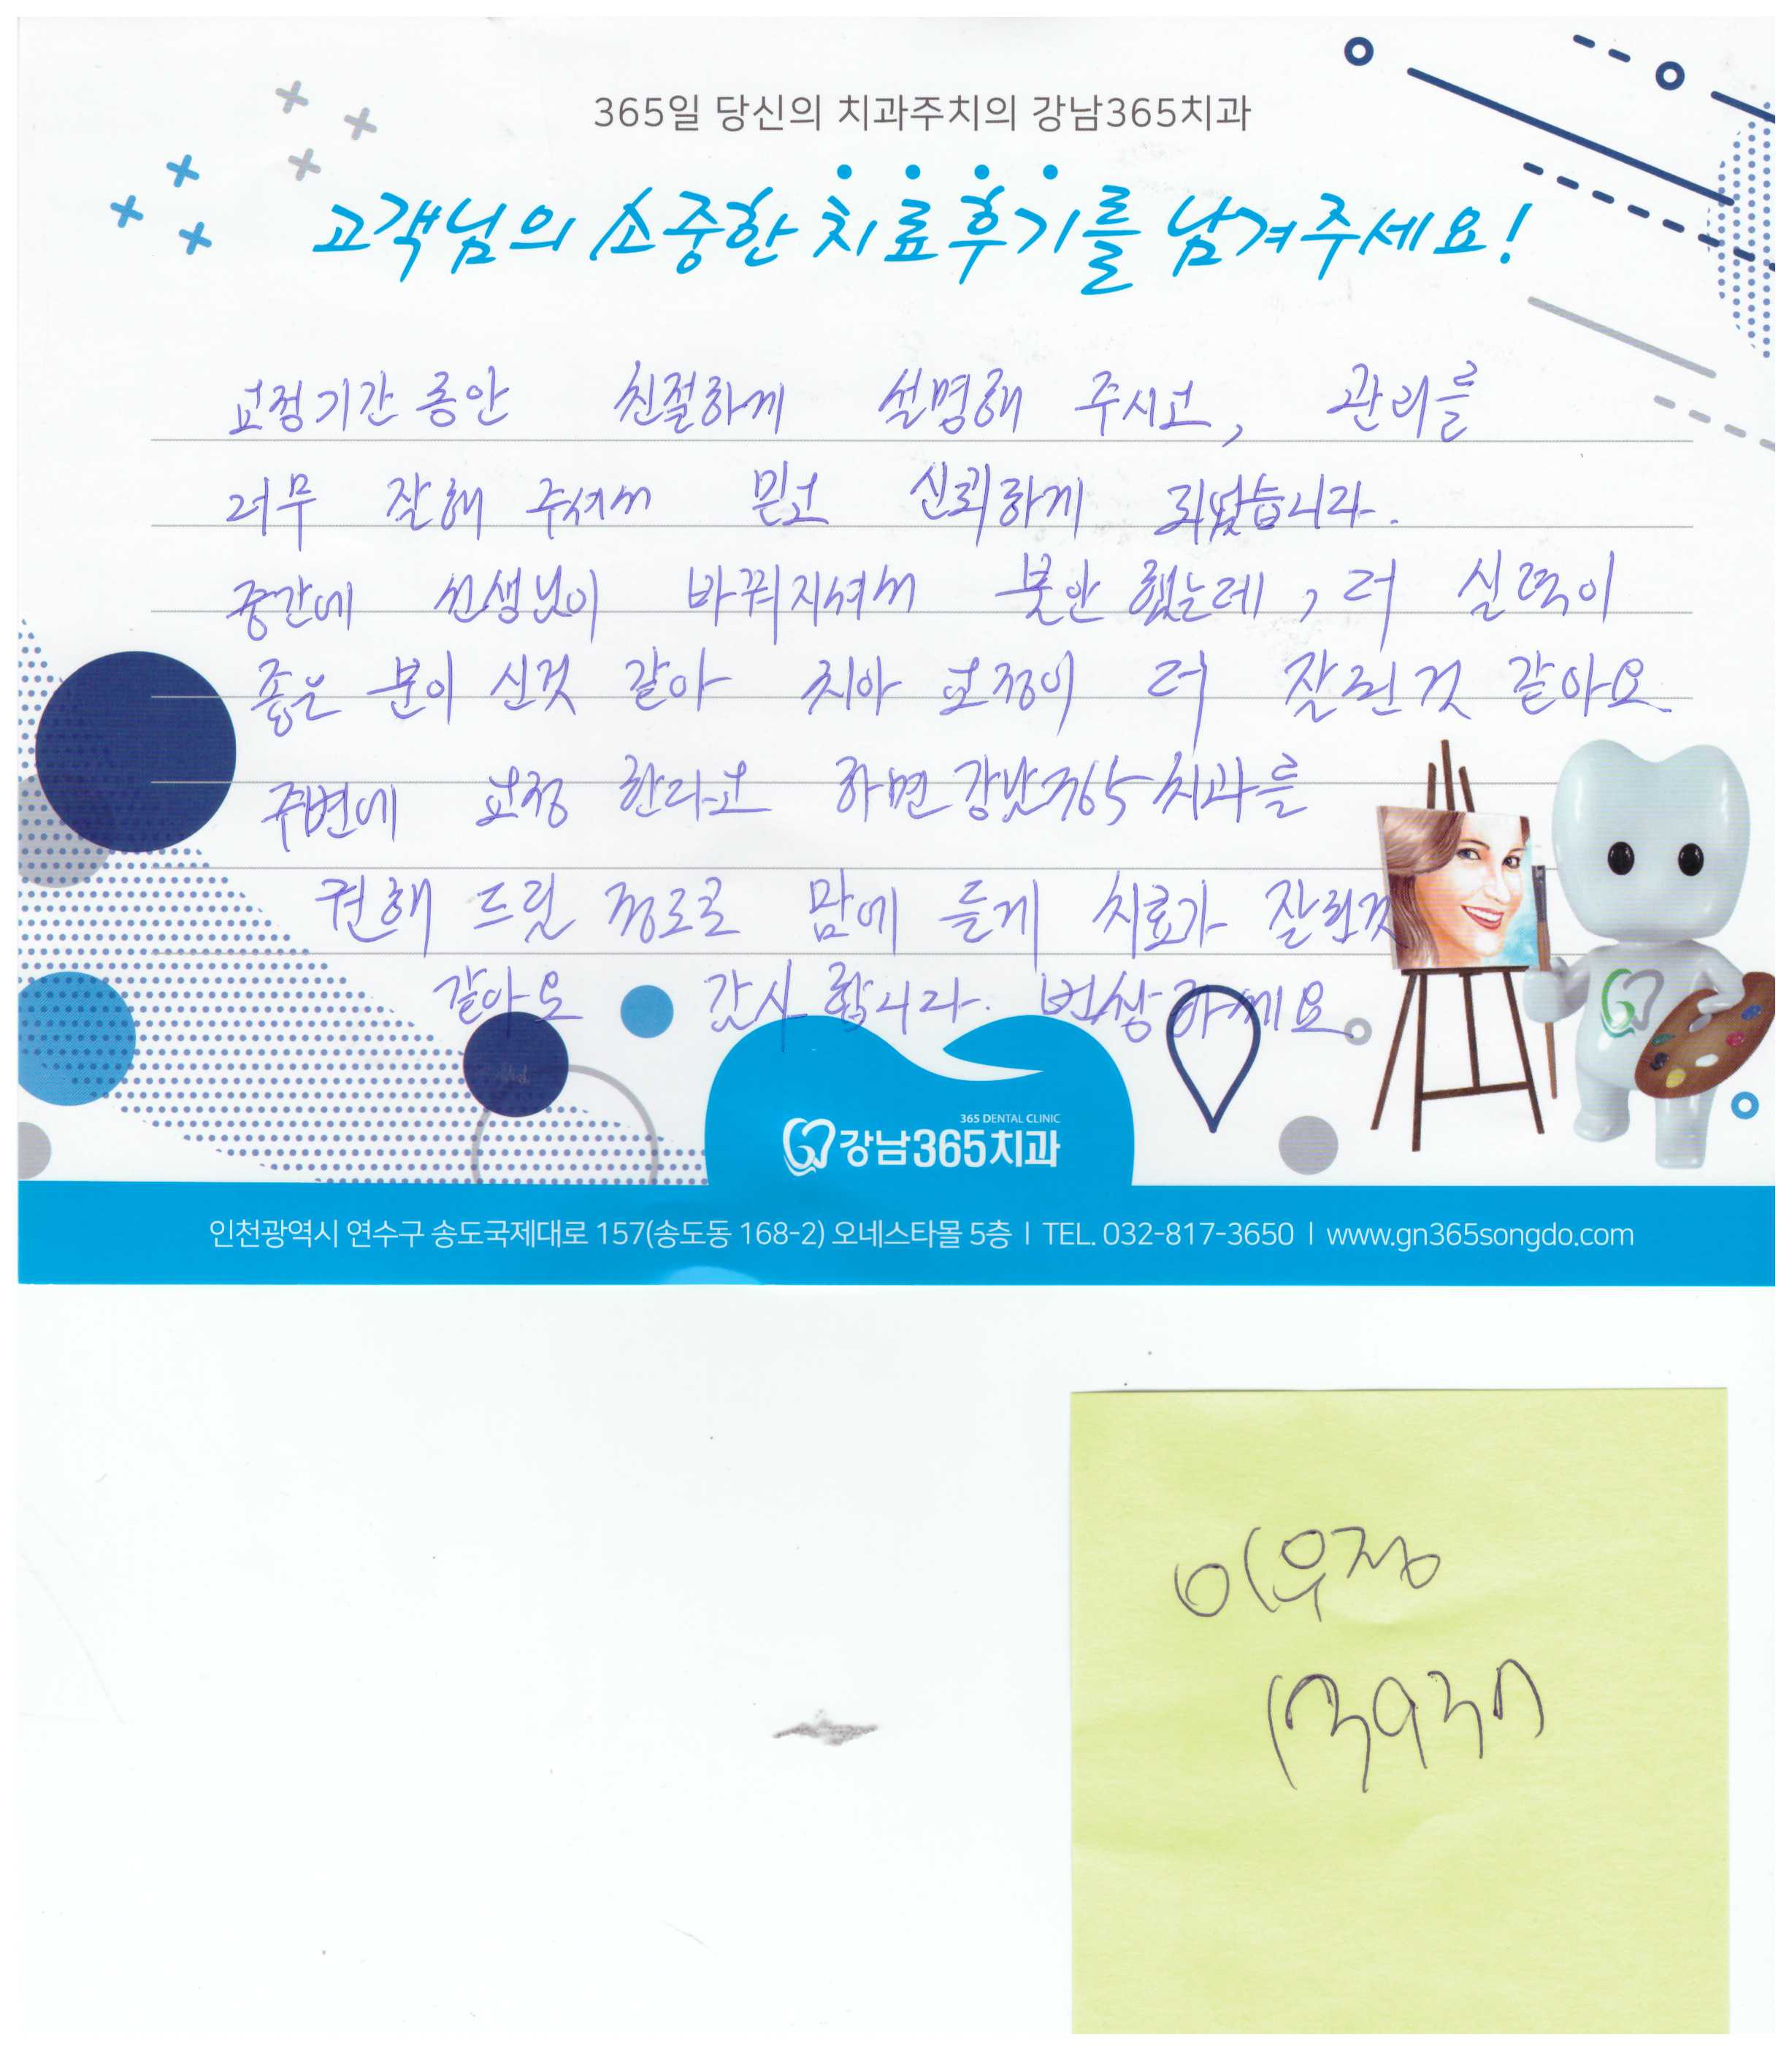 365일 당신의 치과주치의 강남365치과
고객님의 소중한 치료후기를 남겨주세요!
교정기간 동안 친절하게 설명해 주시고, 관리를
너무 잘해 주셔서 믿고 신뢰하게 되었습니다.
중간에 선생님이 바뀌지셔서 불안 했는데, 더 실력이
좋은 분이 신것 같아 치아 교정이 더 잘된것 같아요
주변에 교정 한다고 하면 강남365치과를
권해 드릴 정도로 맘에 들게 치료가 잘된것
같아요 감사 합니다. 번창하세요
365 DENTAL CLINIC
강남365치과
인천광역시 연수구 송도국제대로 157(송도동 168-2) 오네스타몰 5층 | TEL. 032-817-3650 | www.gn365songdo.com
이우정